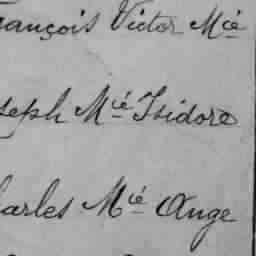 rançois Victor Mⁱᵉ́
seph Mⁱᵉ́ Isidore
harles Mⁱᵉ́ Ange